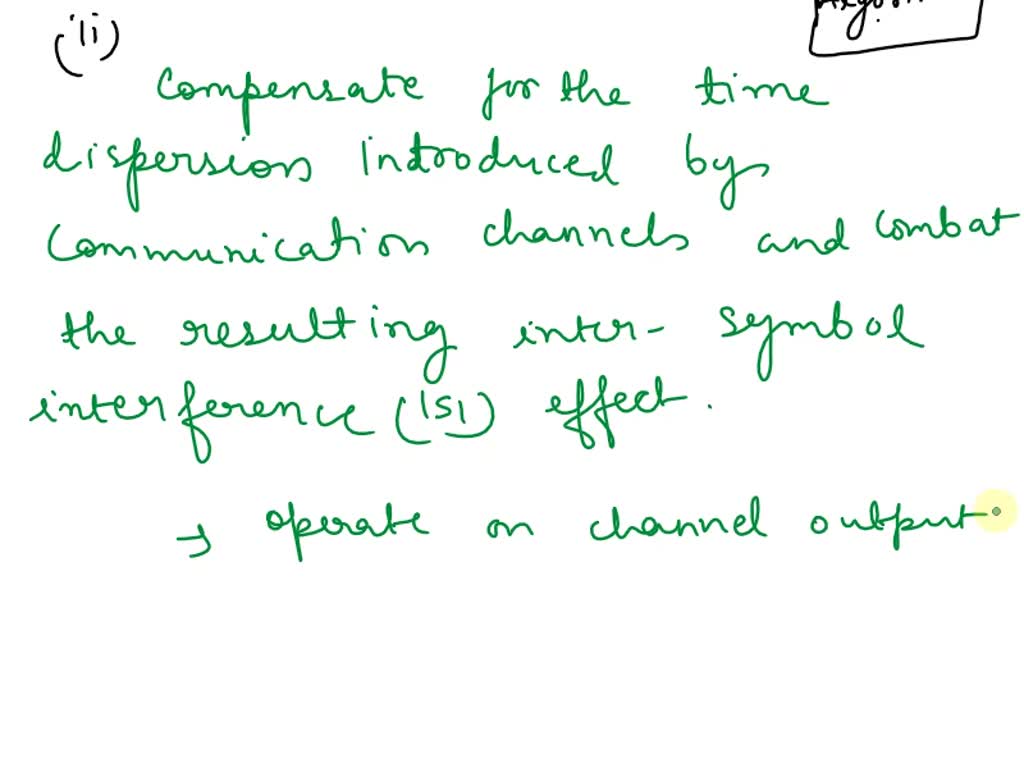 (ii)
Compensate for the time
dispersion introduced by
Communication channels and combat
the resulting inter- symbol
interference (ISI) effect.
→ operate on channel output